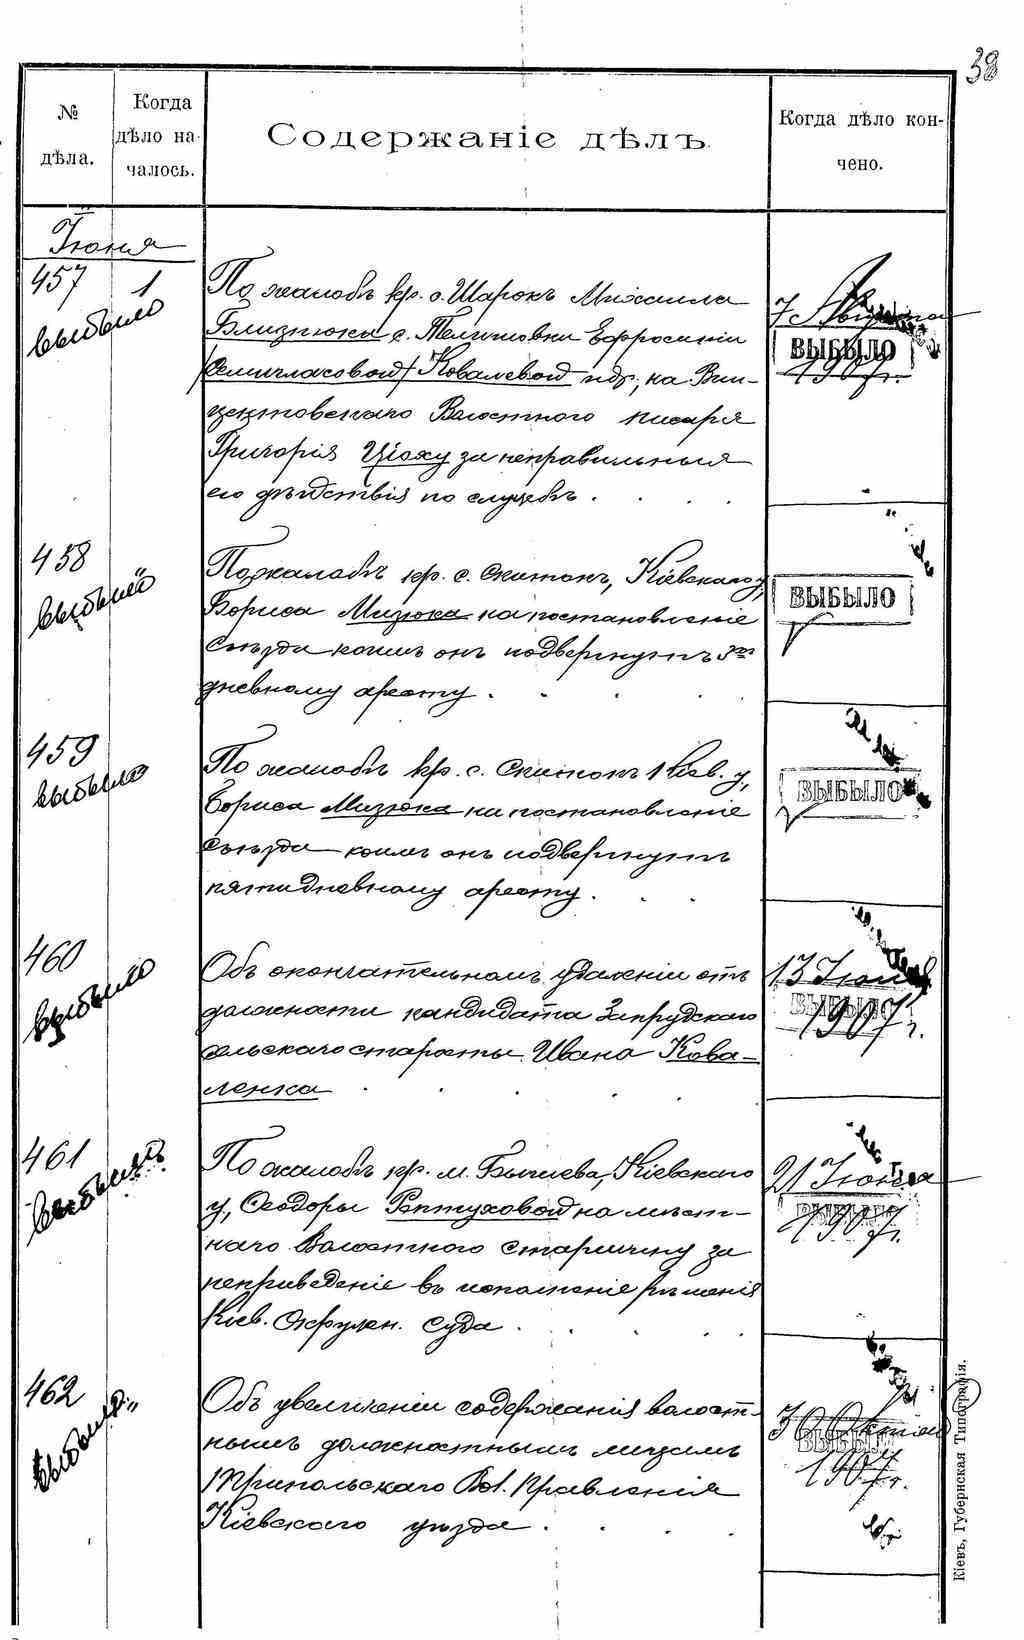 38
№ дѣла.
Когда дѣло на-
чалось.
Содержаніе дѣлъ.
Когда дѣло кон-
чено.
Іюня
457 1
выбыло
По жалобѣ кр. с. Шарокъ Михаила
Близнюка с. Телишовки Ефросиніи
/Семигласовой/ Ковалевой и др., на Вин-
центовскаго Волостного писаря
Григорія Ціоху за неправильныя
его дѣйствія по службѣ.
7 Августа
ВЫБЫЛО
1907 г.
458
выбыло
По жалобѣ кр. с. Скитокъ, Кіевскаго у,
Бориса Мизюка на постановленіе
Съѣзда коимъ онъ подвергнутъ 3хъ
дневному аресту.
ВЫБЫЛО
459
выбыло
По жалобѣ кр. с. Скитокъ Кіев. у,
Бориса Мизюка на постановленіе
Съѣзда коимъ онъ подвергнутъ
пятидневному аресту.
ВЫБЫЛО
460
выбыло
Объ окончательномъ удаленіи отъ
должности кандидата Запрудскаго
сельскаго старосты Ивана Кова-
ленка
13 Іюня
ВЫБЫЛО
1907 г.
461
выбылъ
По жалобѣ кр. м. Бышева, Кіевскаго
у, Ѳеодоры Рептуховой на мѣст-
наго Волостного старшину за
неприведеніе въ исполненіе рѣшенія
Кіев. Окружн. Суда.
21 Іюня
ВЫБЫЛО
1907 г.
462
выбыло
Объ увеличеніи содержанія волост-
нымъ должностнымъ лицамъ
Трипольскаго Вол. Правленія
Кіевскаго уѣзда.
30 Октяб
ВЫБЫЛО
1907 г.
Кіевъ, Губернская Типографія.